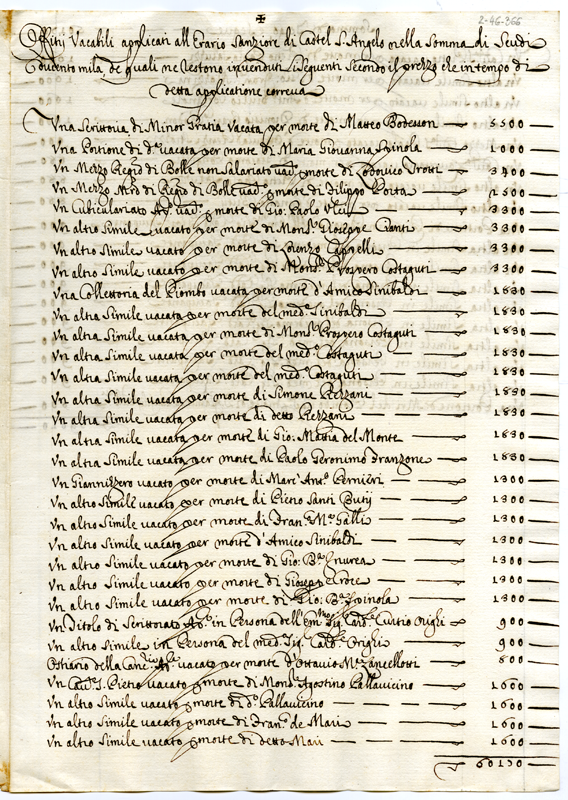 ✠
2-46-366
Offitij Vacabili applicati all'Erario Sanziore di Castel S. Angelo nella Somma di Scudi
Ducento mila de quali ne restono invenduti li seguenti secondo il prezzo che in tempo di
detta applicatione correva
Una Scrittoria di Minor Gratia vacata per morte di Matteo 5500
Una Portione di da. vacata per morte di Maria Giovanna Spinola 1000
Un Mezzo Regro. di Bolle non Salariato vad. p morte di Lodovico Trotti 3400
Un Mezzo Mro. di Regro. di Bolle vad. p morte di Filippo Porta 2500
Un Cubiculariato Ap. vad. p morte di Gio: Paolo 3300
Un altro Simile vacato per morte di Monsr. Gioseppe 3300
Un altro Simile vacato per morte di Lorenzo 3300
Un altro Simile vacato per morte di Monsr. Prospero Costaguti 3300
Una Collettoria del Piombo vacata per morte d'Amico Sinibaldi 1830
Un altra Simile vacata per morte del medo. Sinibaldi 1830
Un altra Simile vacata per morte di Monsr. Prospero Costaguti 1830
Un altra Simile vacata per morte del medo. Costaguti 1830
Un altra Simile vacata per morte del medo. Costaguti 1830
Un altra Simile vacata per morte di Simone Rezzani 1830
Un altra Simile vacata per morte di detto Rezzani 1830
Un altra Simile vacata per morte di Gio: Mattia del Monte 1830
Un altra Simile vacata per morte di Paolo Geronimo Franzone 1830
Un Giannizzero vacato per morte di Marc'Anto. Pernieri 1300
Un altro Simile vacato per morte di Pietro Santi Butij 1300
Un altro Simile vacato per morte di Fran. Ma. Galli 1300
Un altro Simile vacato per morte d'Amico Sinibaldi 1300
Un altro Simile vacato per morte di Gio: Ba. Inurea 1300
Un altro Simile vacato per morte di Gioseppe Croce 1300
Un altro Simile vacato per morte di Gio: Ba. Spinola 1300
Un Titolo di Scrittorato Ap. in Persona dell'Emmo. Sig. Card. Curtio Origli 900
Un altro Simile in Persona del medo. Sig. Card. Origli 900
Ostiario della Cancria. Ap. vacato per morte d'Ottavio Ma. Lancellotti 800
Un Cavo. S. Pietro vacato p morte di Monsr. Agostino Pallavicino 1600
Un altro Simile vacato p morte di do. Pallavicino 1600
Un altro Simile vacato p morte di Fran. de Mari 1600
Un altro Simile vacato p morte di detto Mari 1600
60130